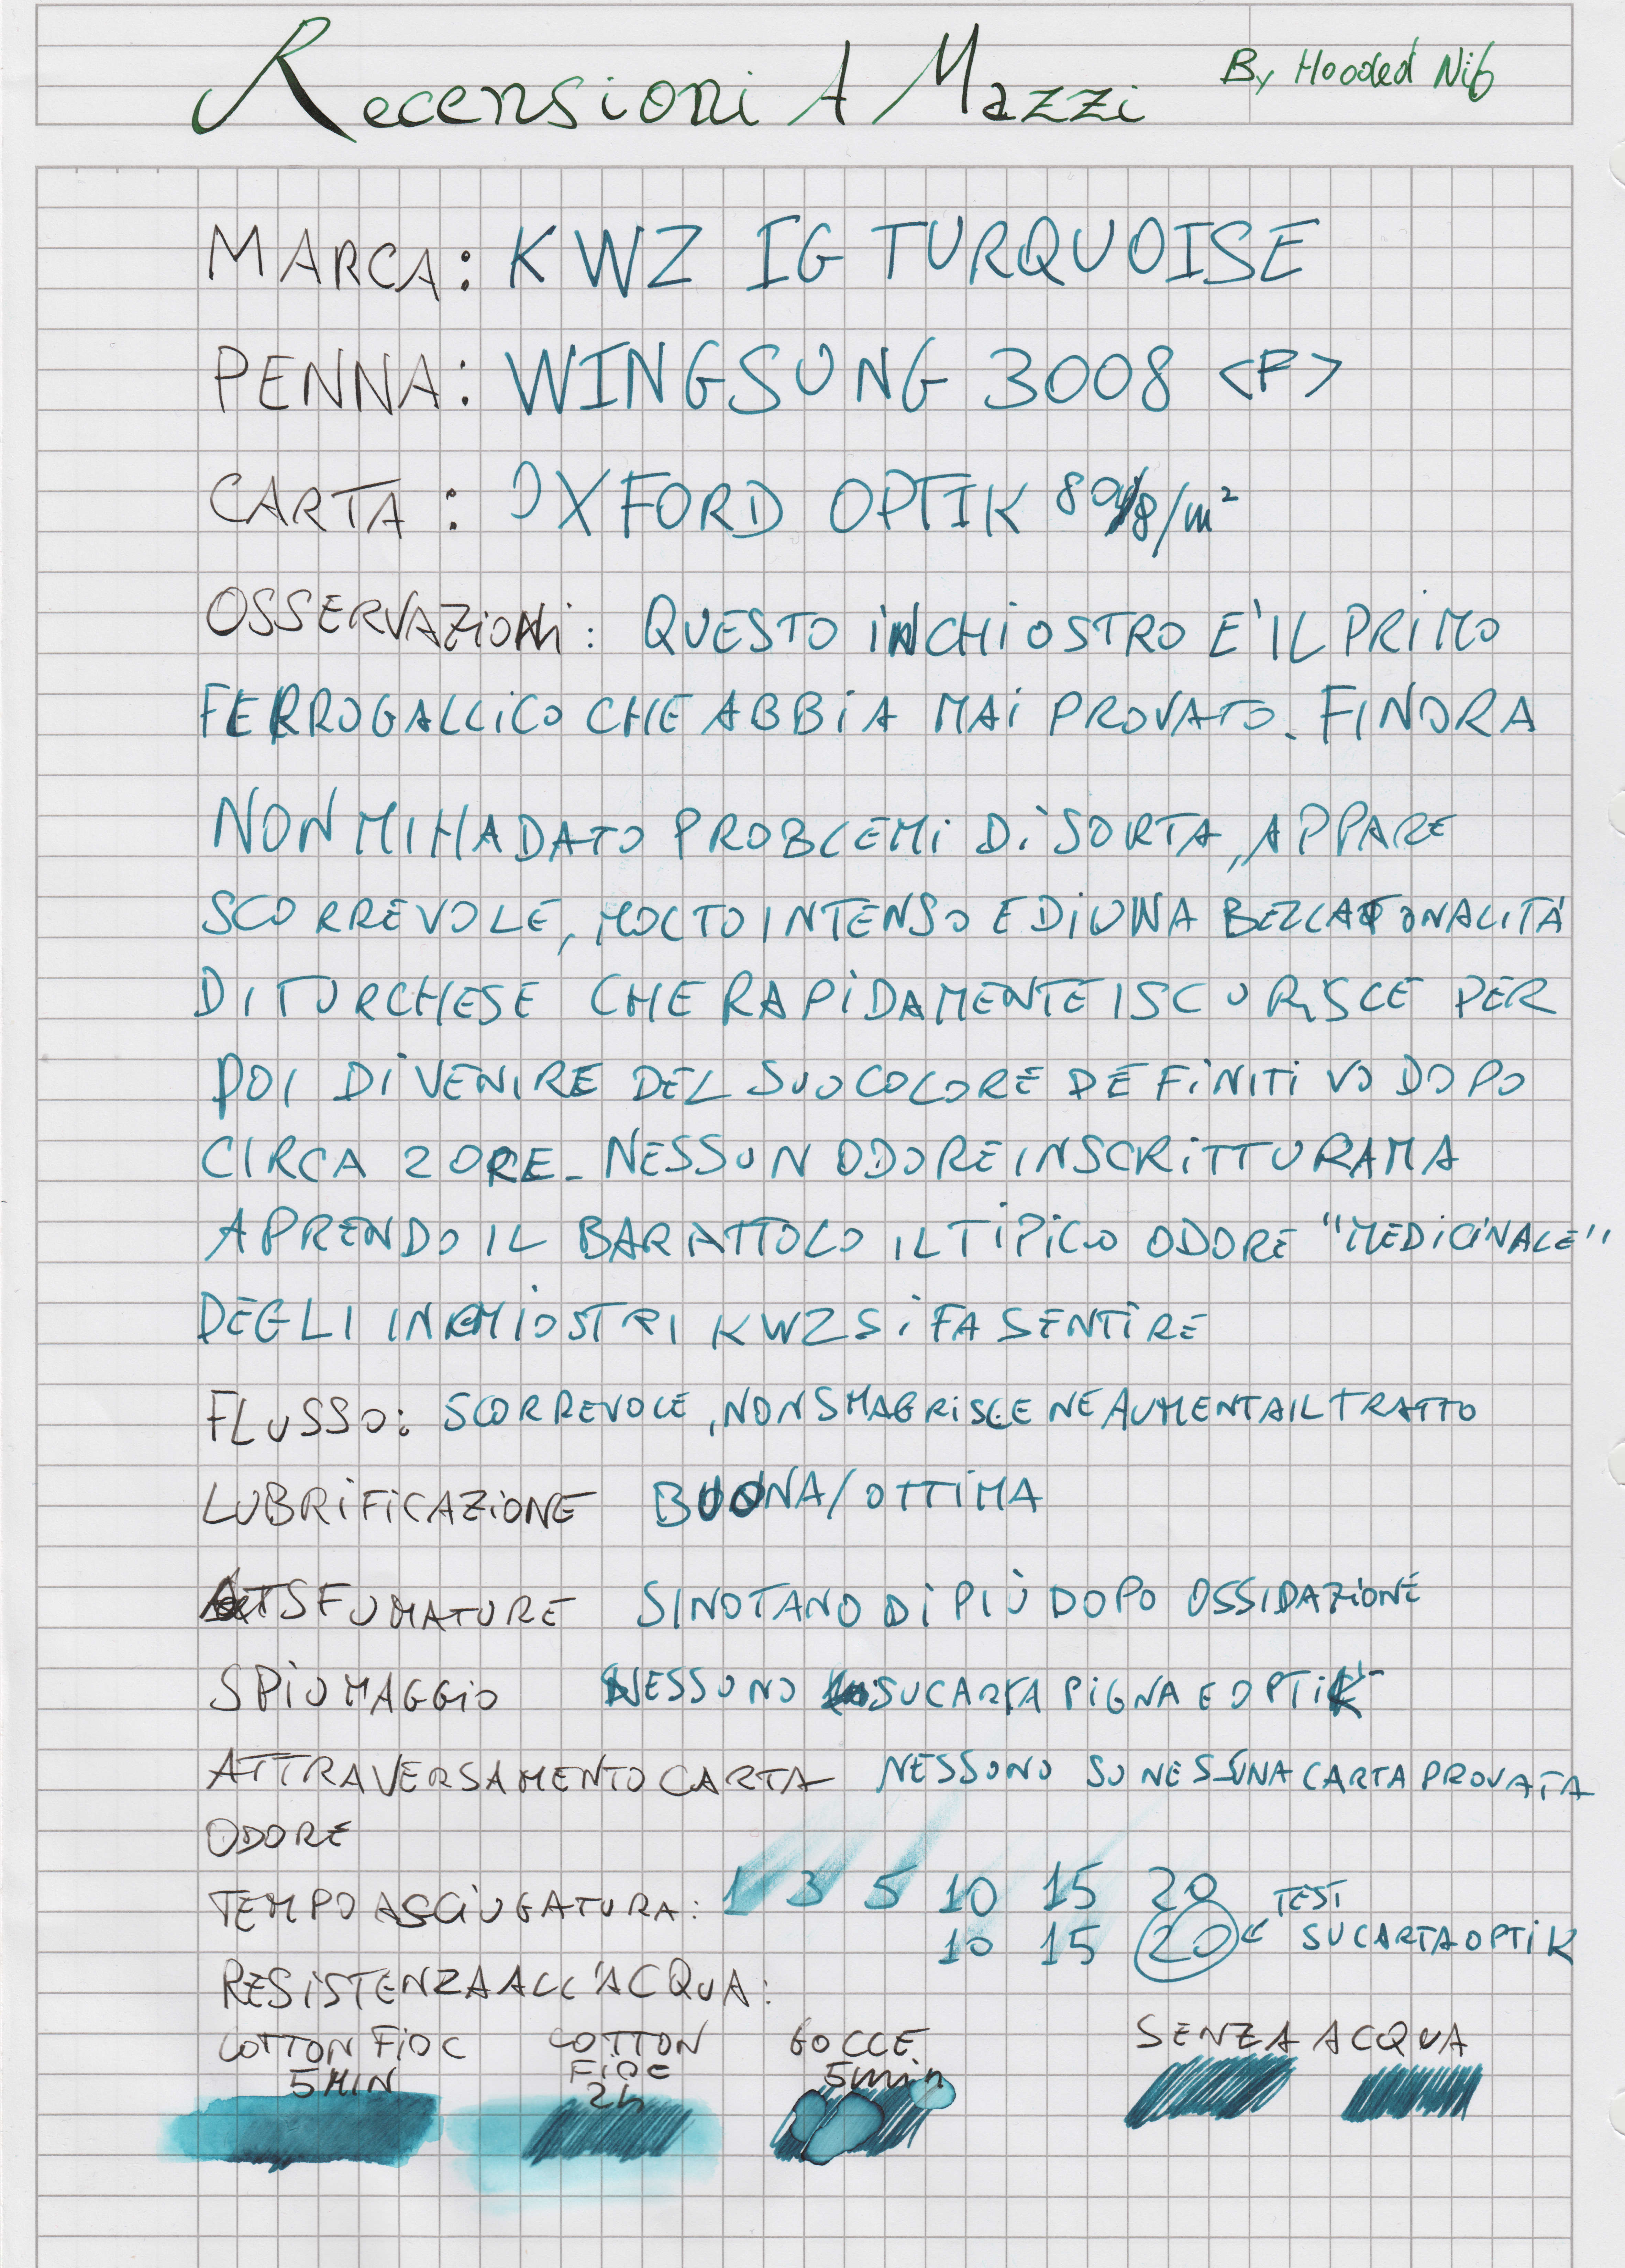 Recensioni A Mazzi
By Hooded Nib
MARCA: KWZ IG TURQUOISE
PENNA: WINGSUNG 3008 <F>
CARTA: OXFORD OPTIK 80 g/m²
OSSERVAZIONI: QUESTO INCHIOSTRO E' IL PRIMO
FERROGALLICO CHE ABBIA MAI PROVATO. FINORA
NON MI HA DATO PROBLEMI DI SORTA, APPARE
SCORREVOLE, MOLTO INTENSO E DI UNA BELLA TONALITÀ
DI TURCHESE CHE RAPIDAMENTE ISCURISCE PER
POI DIVENIRE DEL SUO COLORE DEFINITIVO DOPO
CIRCA 2 ORE. NESSUN ODORE IN SCRITTURA MA
APRENDO IL BARATTOLO IL TIPICO ODORE "MEDICINALE"
DEGLI INCHIOSTRI KWZ SI FA SENTIRE
FLUSSO: SCORREVOLE, NON SMAGRISCE NE AUMENTA IL TRATTO
LUBRIFICAZIONE BUONA/OTTIMA
SFUMATURE SI NOTANO DI PIÙ DOPO OSSIDAZIONE
SPIUMAGGIO NESSUNO SU CARTA PIGNA E OPTIK
ATTRAVERSAMENTO CARTA NESSUNO SU NESSUNA CARTA PROVATA
ODORE
TEMPO ASCIUGATURA: 1 3 5 10 15 20 TEST
10 15 20 < SU CARTA OPTIK
RESISTENZA ALL'ACQUA:
COTTON FIOC COTTON GOCCE SENZA ACQUA
5 MIN FIOC 5min
2h